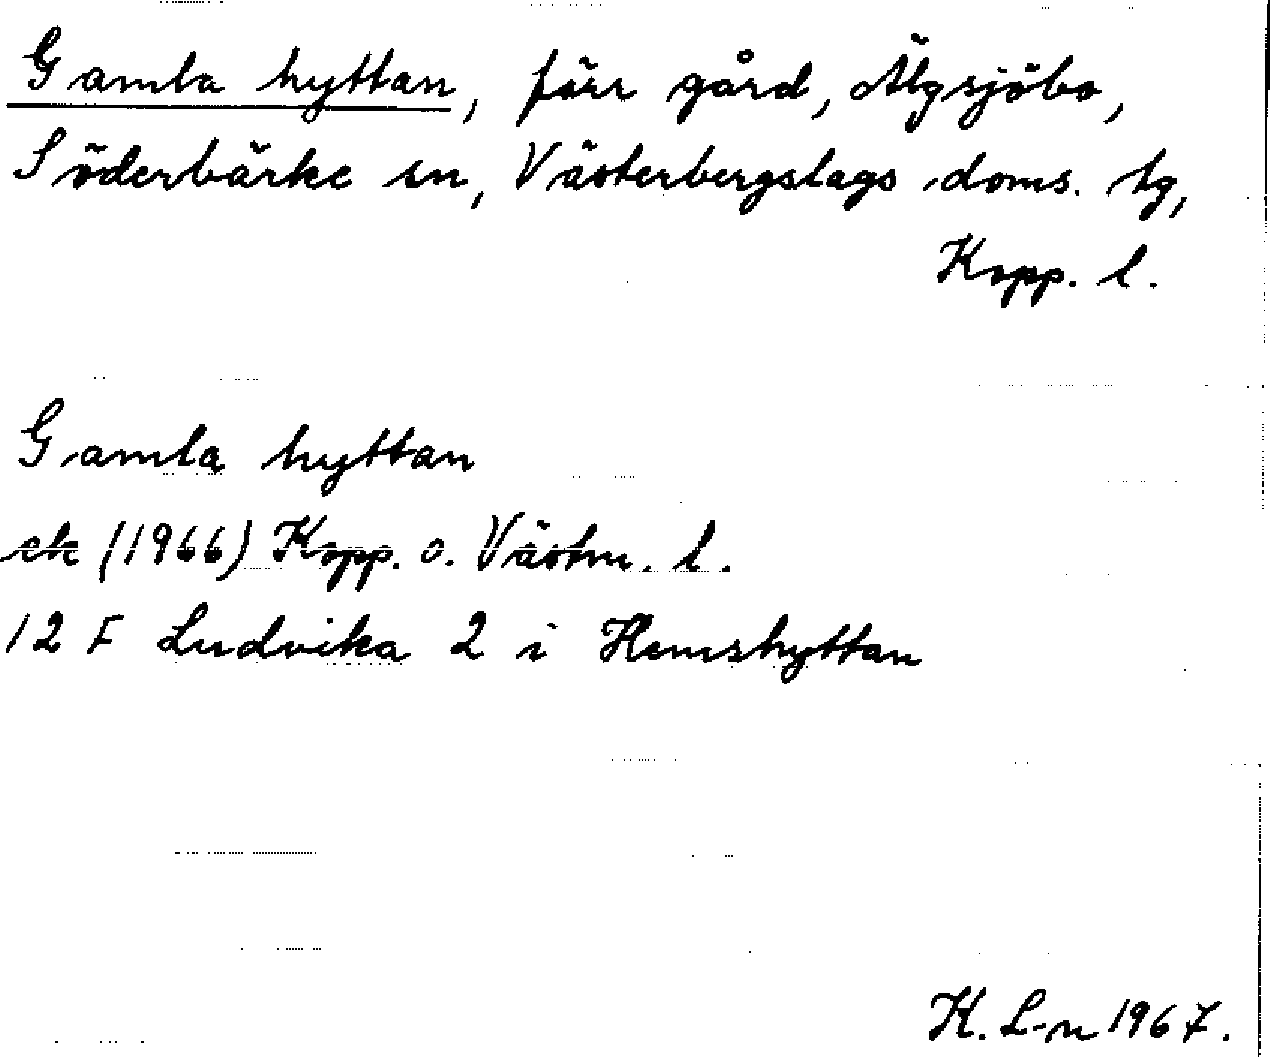 Gamla hyttan, förr gård, Älgsjöbo,
Söderbärke sn, Västerbergslags doms. tg,
Kopp. l.
Gamla hyttan
ek (1966) Kopp. o. Västm. l.
12 F Ludvika 2 i Hemshyttan
K. L-n 1967.